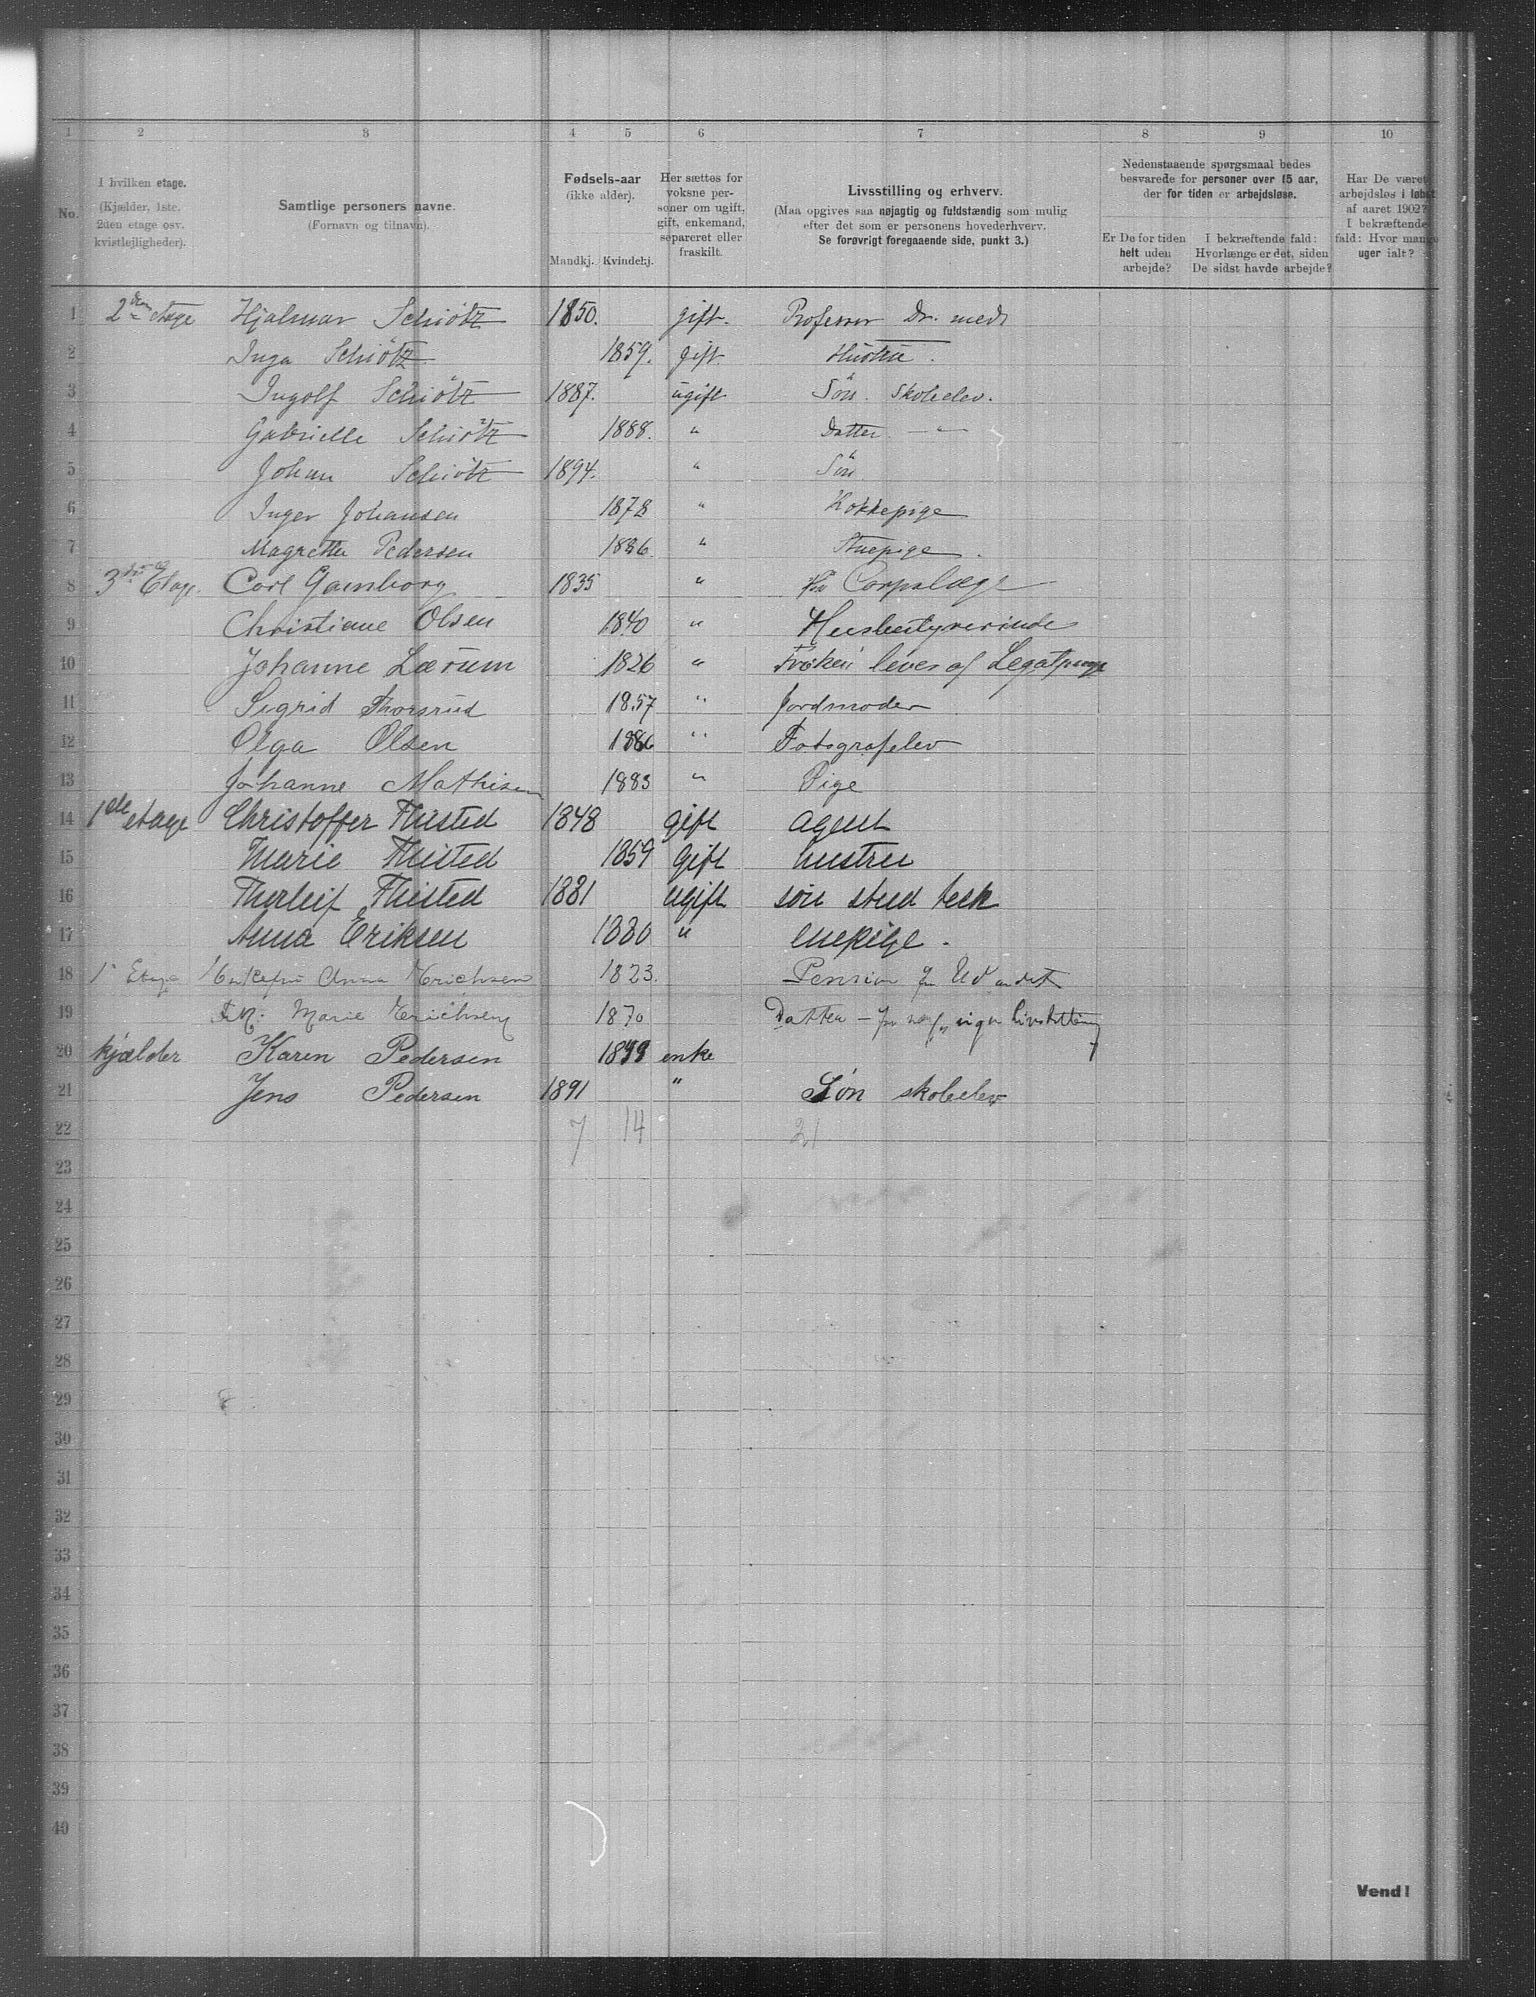 1 2 3 4 5 6 7 8 9 10
No.
I hvilken etage.
(Kjælder, 1ste.
2den etage osv.
kvistlejligheder).
Samtlige personers navne.
(Fornavn og tilnavn).
Fødsels-aar
(ikke alder).
Mandkj. Kvindekj.
Her sættes for
voksne per-
soner om ugift,
gift, enkemand,
separeret eller
fraskilt.
Livsstilling og erhverv.
(Maa opgives saa nøjagtig og fuldstændig som mulig
efter det som er personens hovederhverv.
Se forøvrigt foregaaende side, punkt 3.)
Nedenstaaende spørgsmaal bedes
besvarede for personer over 15 aar,
der for tiden er arbejdsløse.
Er De for tiden
helt uden
arbejde?
I bekræftende fald:
Hvorlænge er det, siden
De sidst havde arbejde?
Har De været
arbejdsløs i løbet
af aaret 1902?
I bekræftende
fald: Hvor mange
uger ialt?
1 2den etage Hjalmar Schiötz 1850. gift. Professor Dr. med.
2 Inga Schiötz 1859. gift Hustru.
3 Ingolf Schiötz 1887. ugift Sön. Skoleelev.
4 Gabrielle Schiötz 1888. " Datter. — " —
5 Johan Schiötz 1894. " Sön
6 Inger Johansen 1878 " Kokkepige
7 Magrethe Pedersen 1836. " Stuepige.
8 3die Etage. Carl Gamborg 1835 " Corpslæge
9 Christiane Olsen 1840 " Husbestyrerinde
10 Johanne Lærum 1826 " Frøken lever af Legatpenge
11 Sigrid Thorsrud 1857 " Jordmoder
12 Olga Olsen 1886 " Fotografelev
13 Johanne Mathisen 1883 " Pige
14 1ste etage Christoffer Thisted 1848 gift agent
15 Marie Thisted 1859 gift hustru
16 Thorleif Thisted 1881 ugift søn stud tech
17 Anna Eriksen 1880 " enepige.
18 1 Etage Enkefru Anna Erichsen 1823. Pension fra Udlandet
19 Marie Erichsen 1870 Datter — livsstilling
20 kjælder Karen Pedersen enke
21 Jens Pedersen 1891 " Søn skoleelev
22 7 14 21
23
24
25
26
27
28
29 8
30
31
32
33
34
35
36
37
38
39
40
Vend!